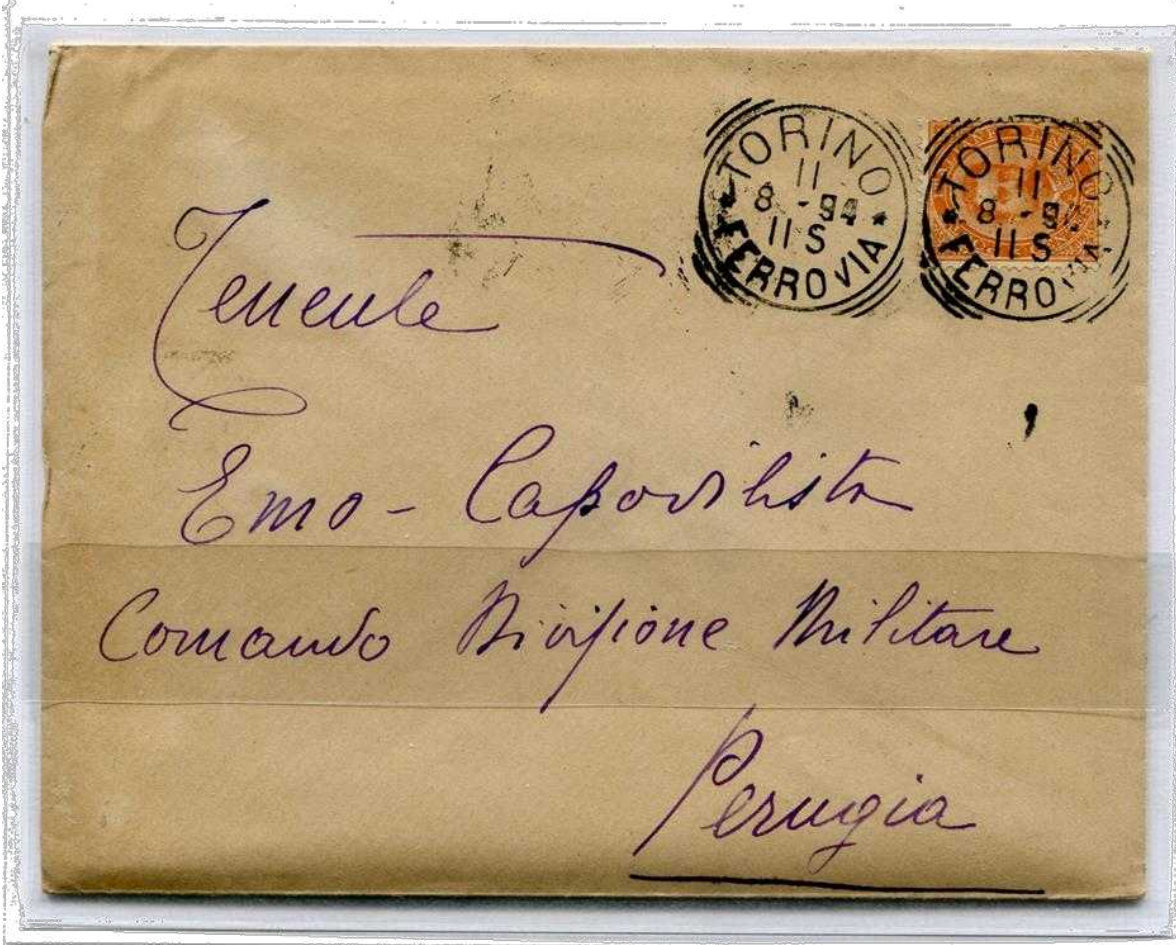 TORINO
11
8 - 94
11 S
FERROVIA
TORINO
11
8 - 94
11 S
FERROVIA
Tenente
Emo - Capodilista
Comando Divisione Militare
Perugia